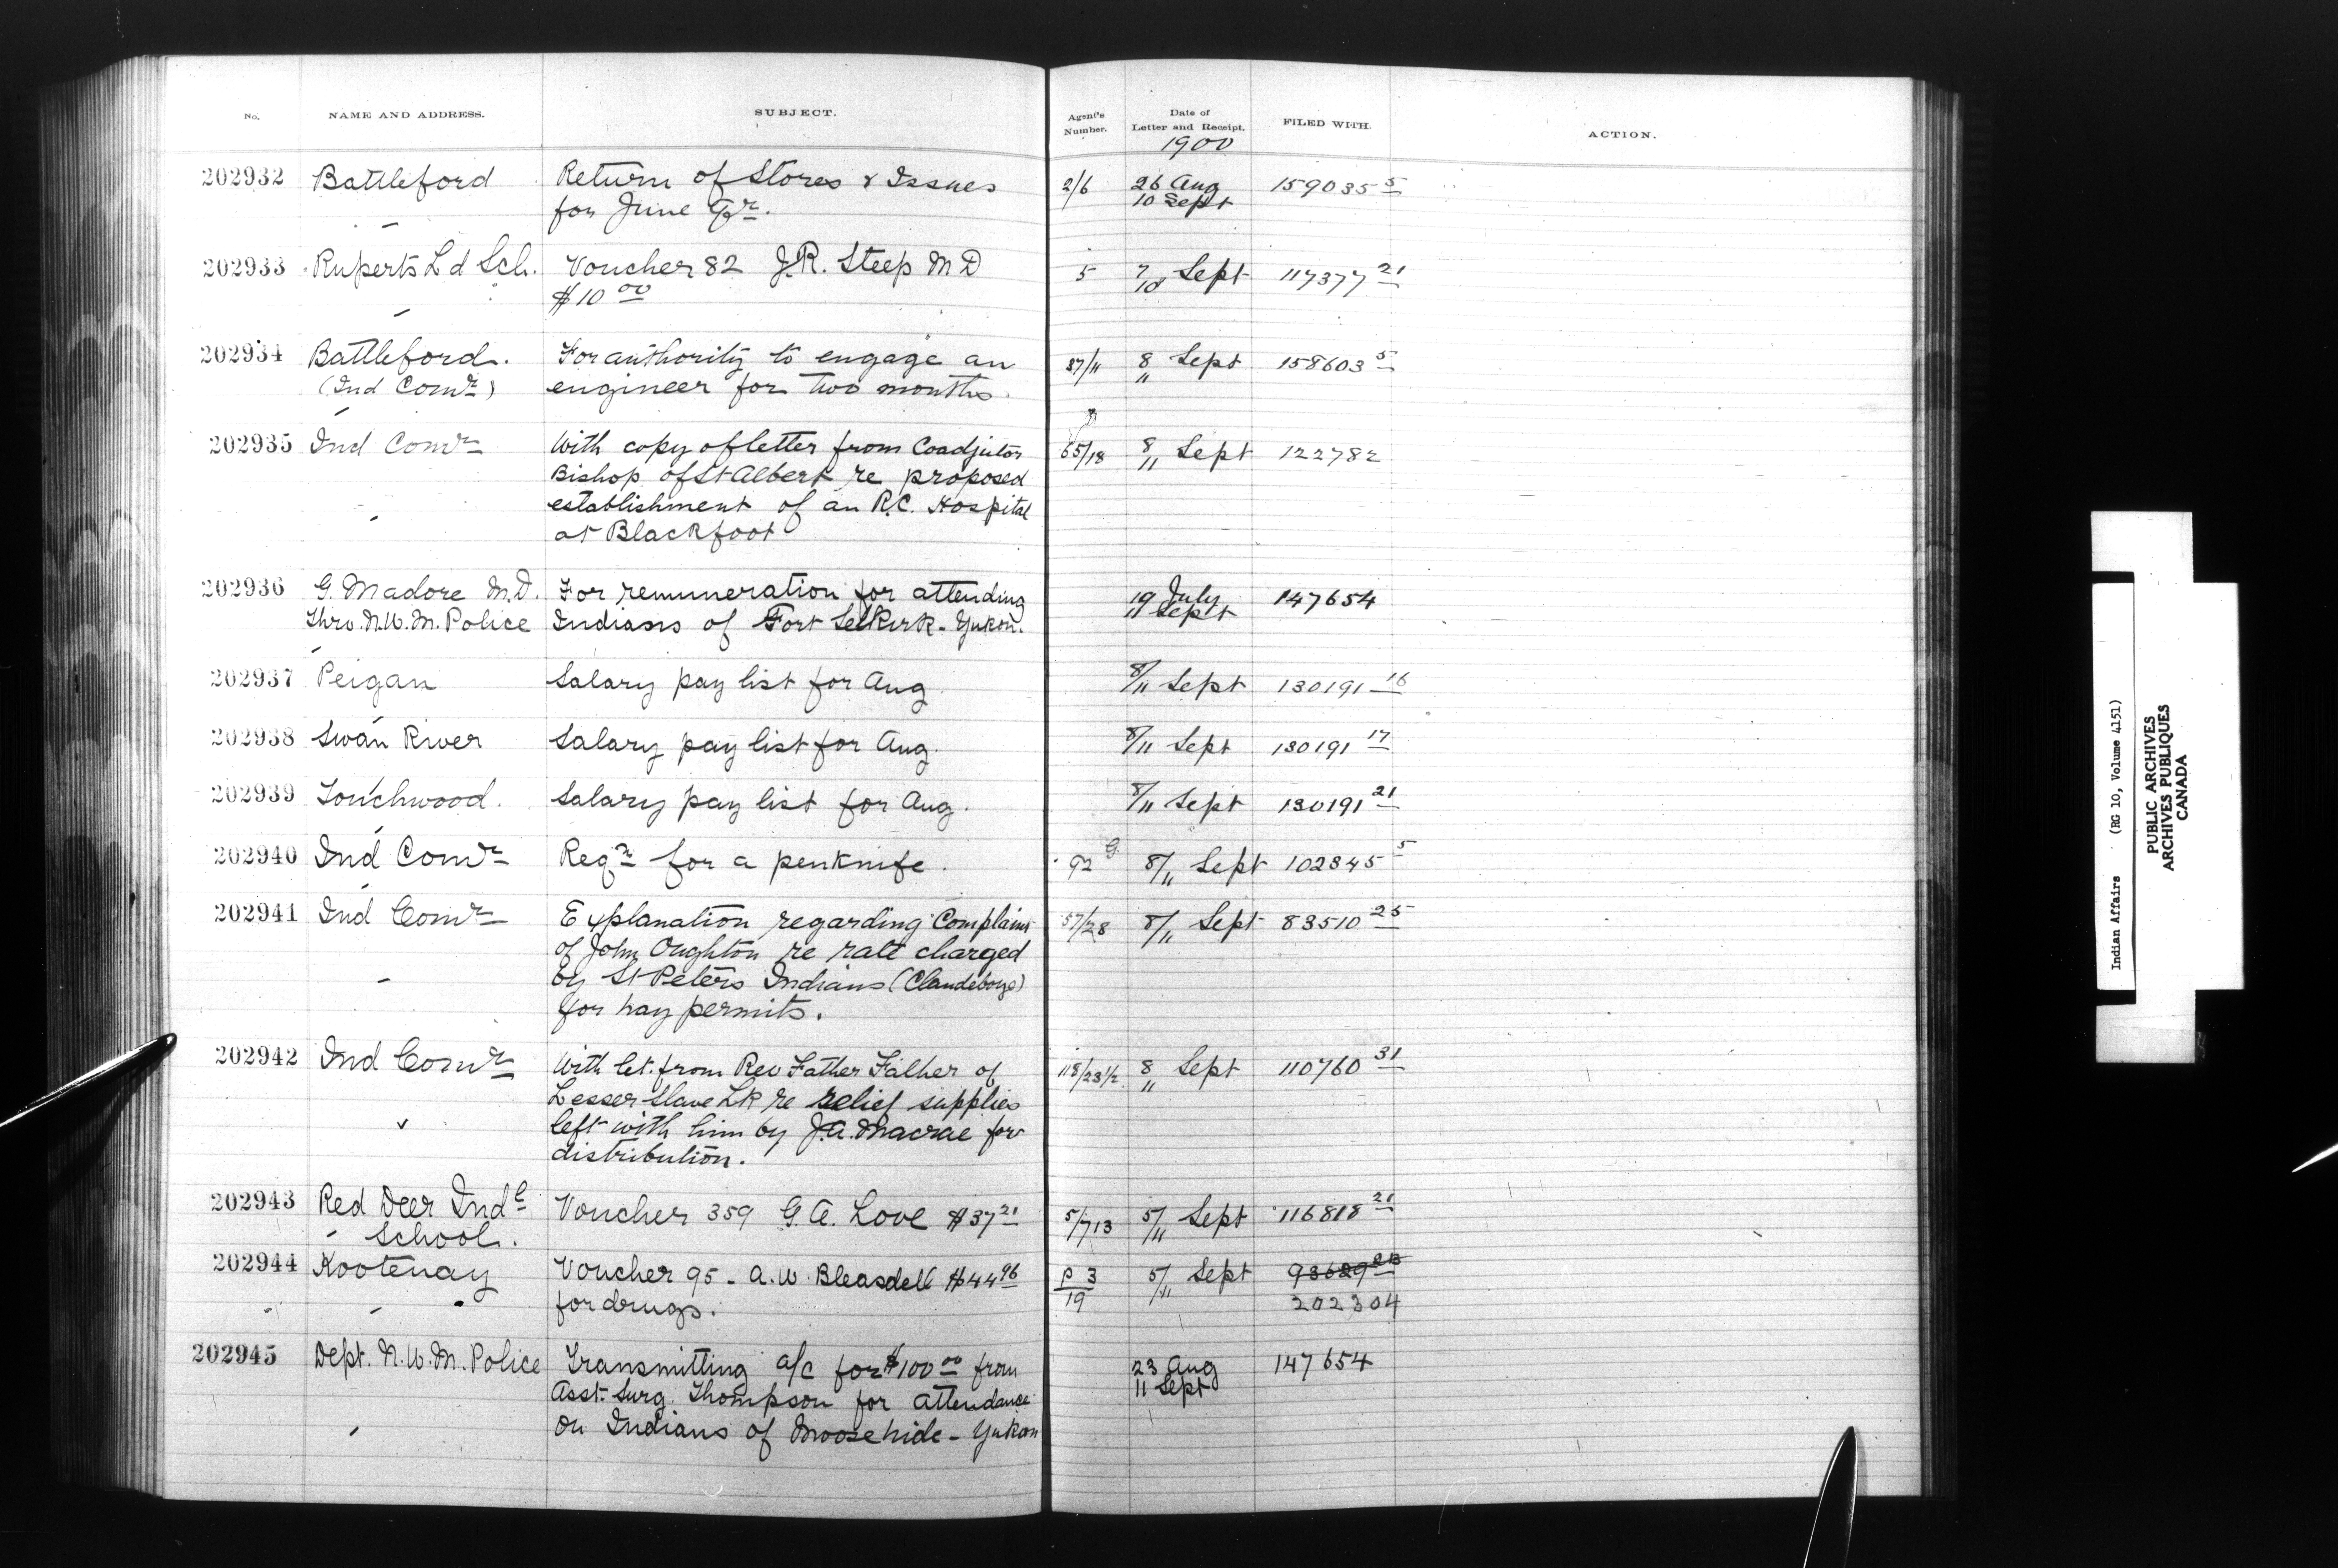 No. NAME AND ADDRESS. SUBJECT. Agent's Number. Date of Letter and Receipt. FILED WITH. ACTION.
1900
202932 Battleford Return of Stores & Issues 2/6 26 Aug 159035 5
for June Qr. 10 Sept
202933 Ruperts Ld Sch. Voucher 82 J.R. Steep M D 5 7/10 Sept 117377 21
$10 00
202934 Battleford. For authority to engage an 37/11 8 Sept 158603 5
(Ind Comr) engineer for two months. 11
202935 Ind Comr With copy of letter from Coadjutor 65/18 8/11 Sept 122782
Bishop of St Albert re proposed
establishment of an R.C. Hospital
at Blackfoot
202936 G. Madore M.D. For remuneration for attending 19 July 147654
Thro. N.W.M. Police Indians of Fort Selkirk - Yukon. 11 Sept
202937 Peigan Salary pay list for Aug 8/11 Sept 130191 16
202938 Swan River Salary pay list for Aug. 8/11 Sept 130191 17
202939 Touchwood. Salary pay list for Aug. 8/11 Sept 130191 21
202940 Ind Comr Reqn for a penknife. 92 G. 8/11 Sept 102845 5
202941 Ind Comr Explanation regarding Complaint 57/28 8/11 Sept 83510 25
of John Oughton re rate charged
by St Peters Indians (Clandeboye)
for hay permits.
202942 Ind Comr With let. from Rev Father Falher of 118/23 1/2 8 Sept 110760 31
Lesser Slave Lk re relief supplies 11
left with him by J.A. Macrae for
distribution.
202943 Red Deer Indl Voucher 359 G. A. Love $37 21 5/713 5/11 Sept 116818 21
School.
202944 Kootenay Voucher 95 - A. W. Bleasdell $44 96 P 3 5/11 Sept 93629 23
for drugs. 19 202304
202945 Dept. N.W.M. Police Transmitting a/c for $100 00 from 23 Aug 147654
Asst. Surg. Thompson for attendance 11 Sept
on Indians of Moosehide - Yukon
Indian Affairs (RG 10, Volume 4151)
PUBLIC ARCHIVES
ARCHIVES PUBLIQUES
CANADA